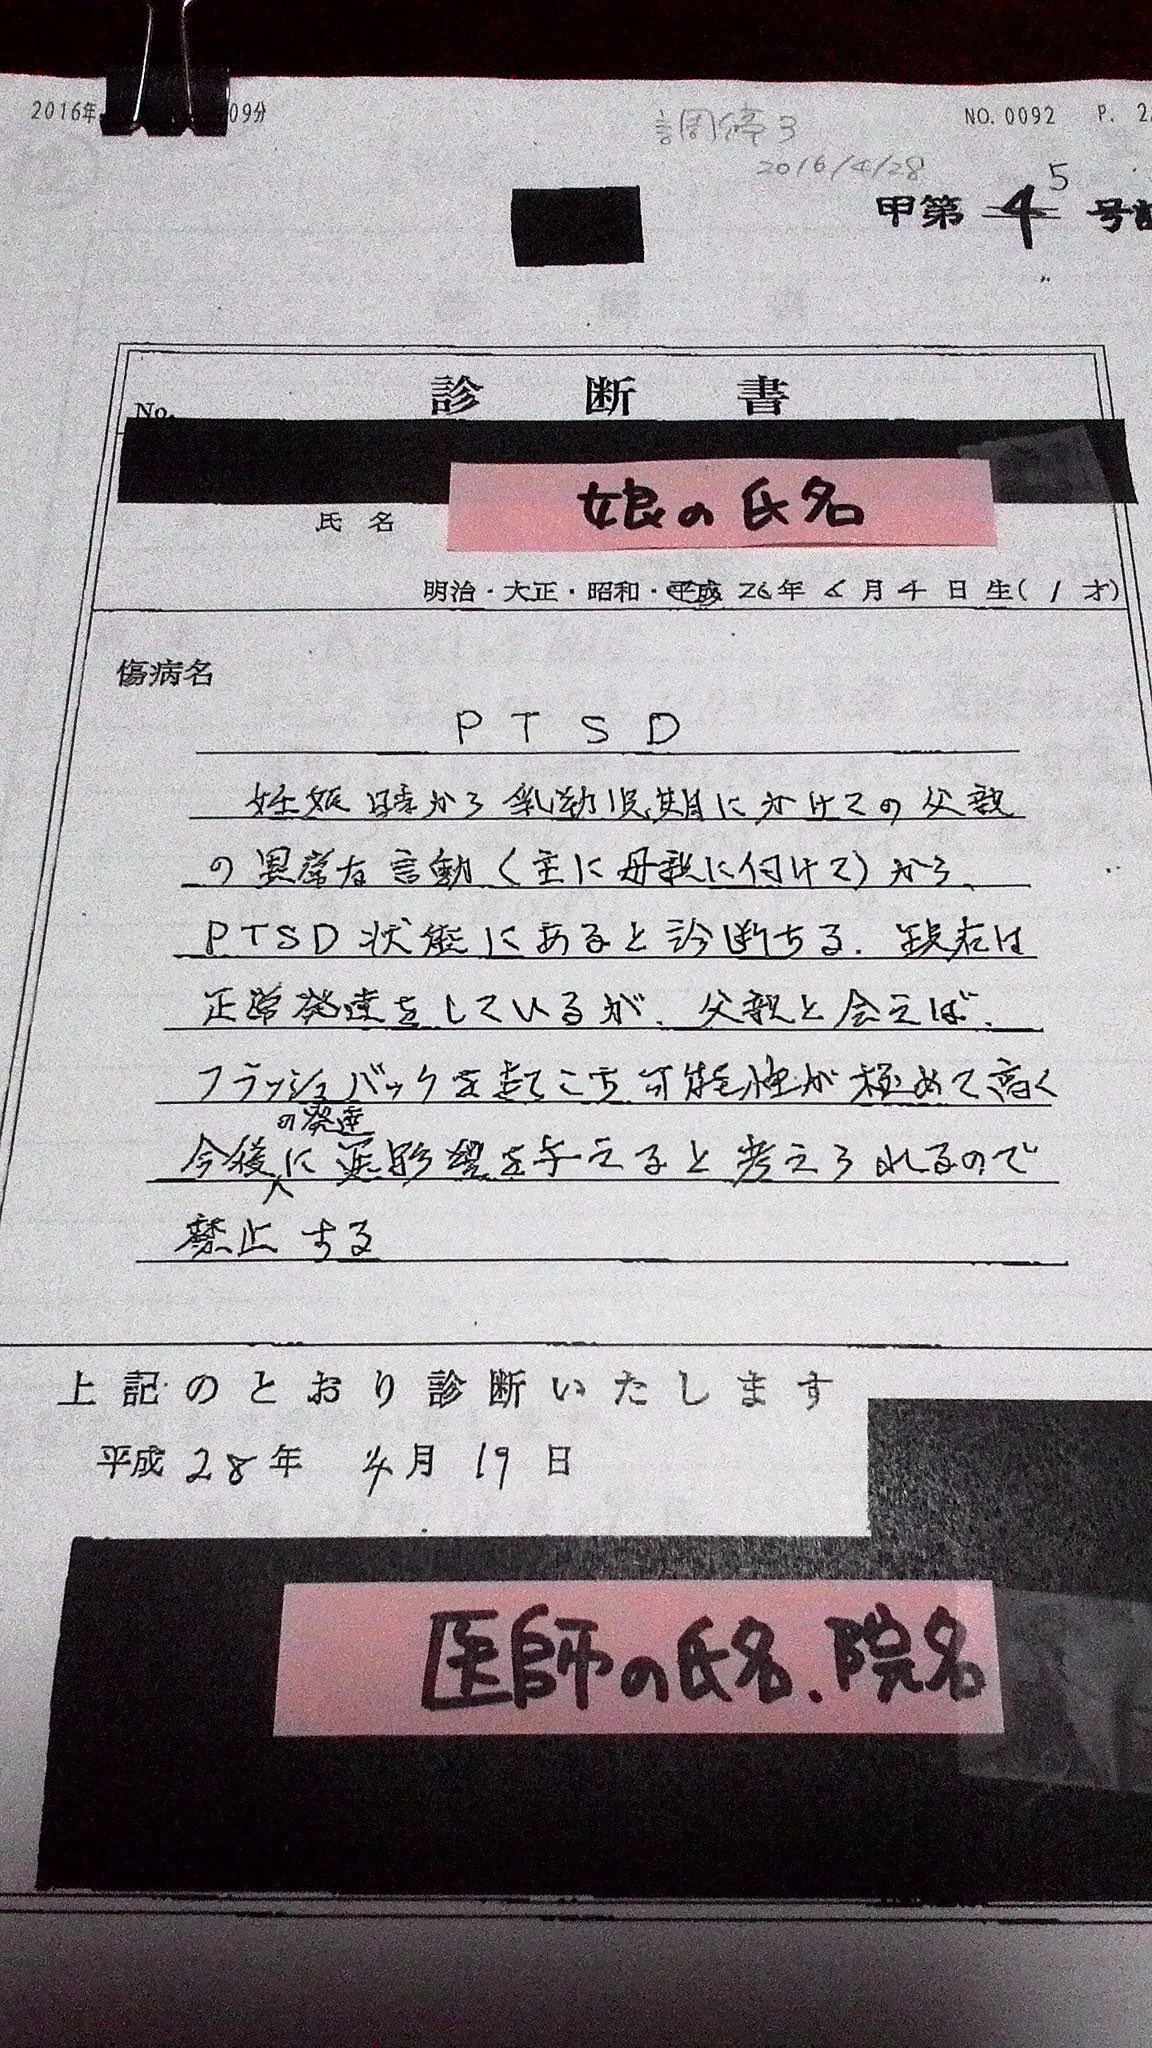 2016年 09分
NO. 0092 P. 2
調停3
2016/4/28
5
甲第 4 号
診断書
No.
娘の氏名
氏名
明治・大正・昭和・平成 26年 6月 4日生(1才)
傷病名
PTSD
妊娠時から乳幼児期にかけての父親
の異常な言動(主に母親に付けて)から、
PTSD状態にあると診断する. 現在は
正常発達をしているが、父親と会えば、
フラッシュバックを起こす可能性が極めて高く
の発達
今後に悪影響を与えると考えられるので
禁止する
上記のとおり診断いたします
平成 28年 4月 19日
医師の氏名、院名